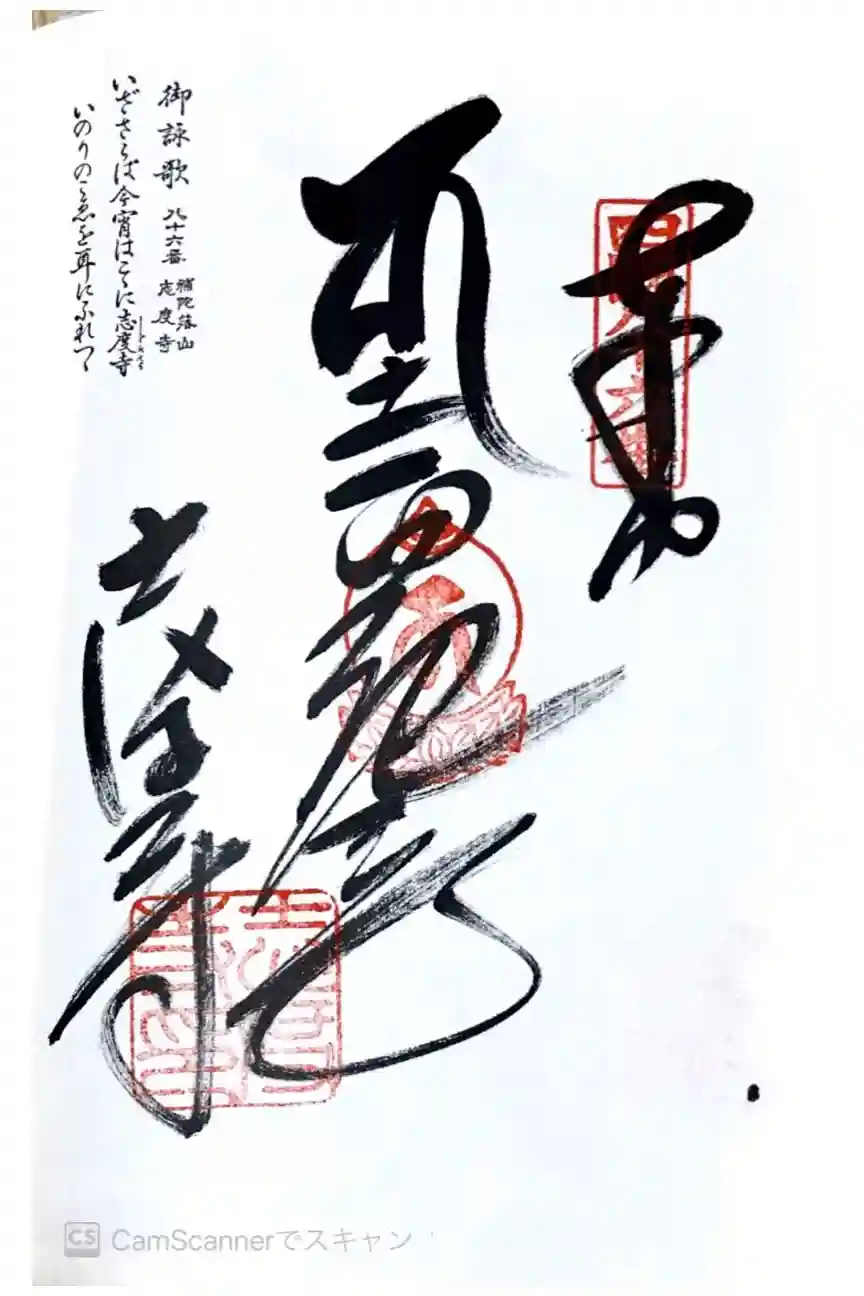 奉納
十一面観世音
御詠歌 八十六番 補陀落山 志度寺
いざさらば今宵はこゝに志度寺
いのりのこゑを耳にふれつつ
志度寺
CS CamScannerでスキャン